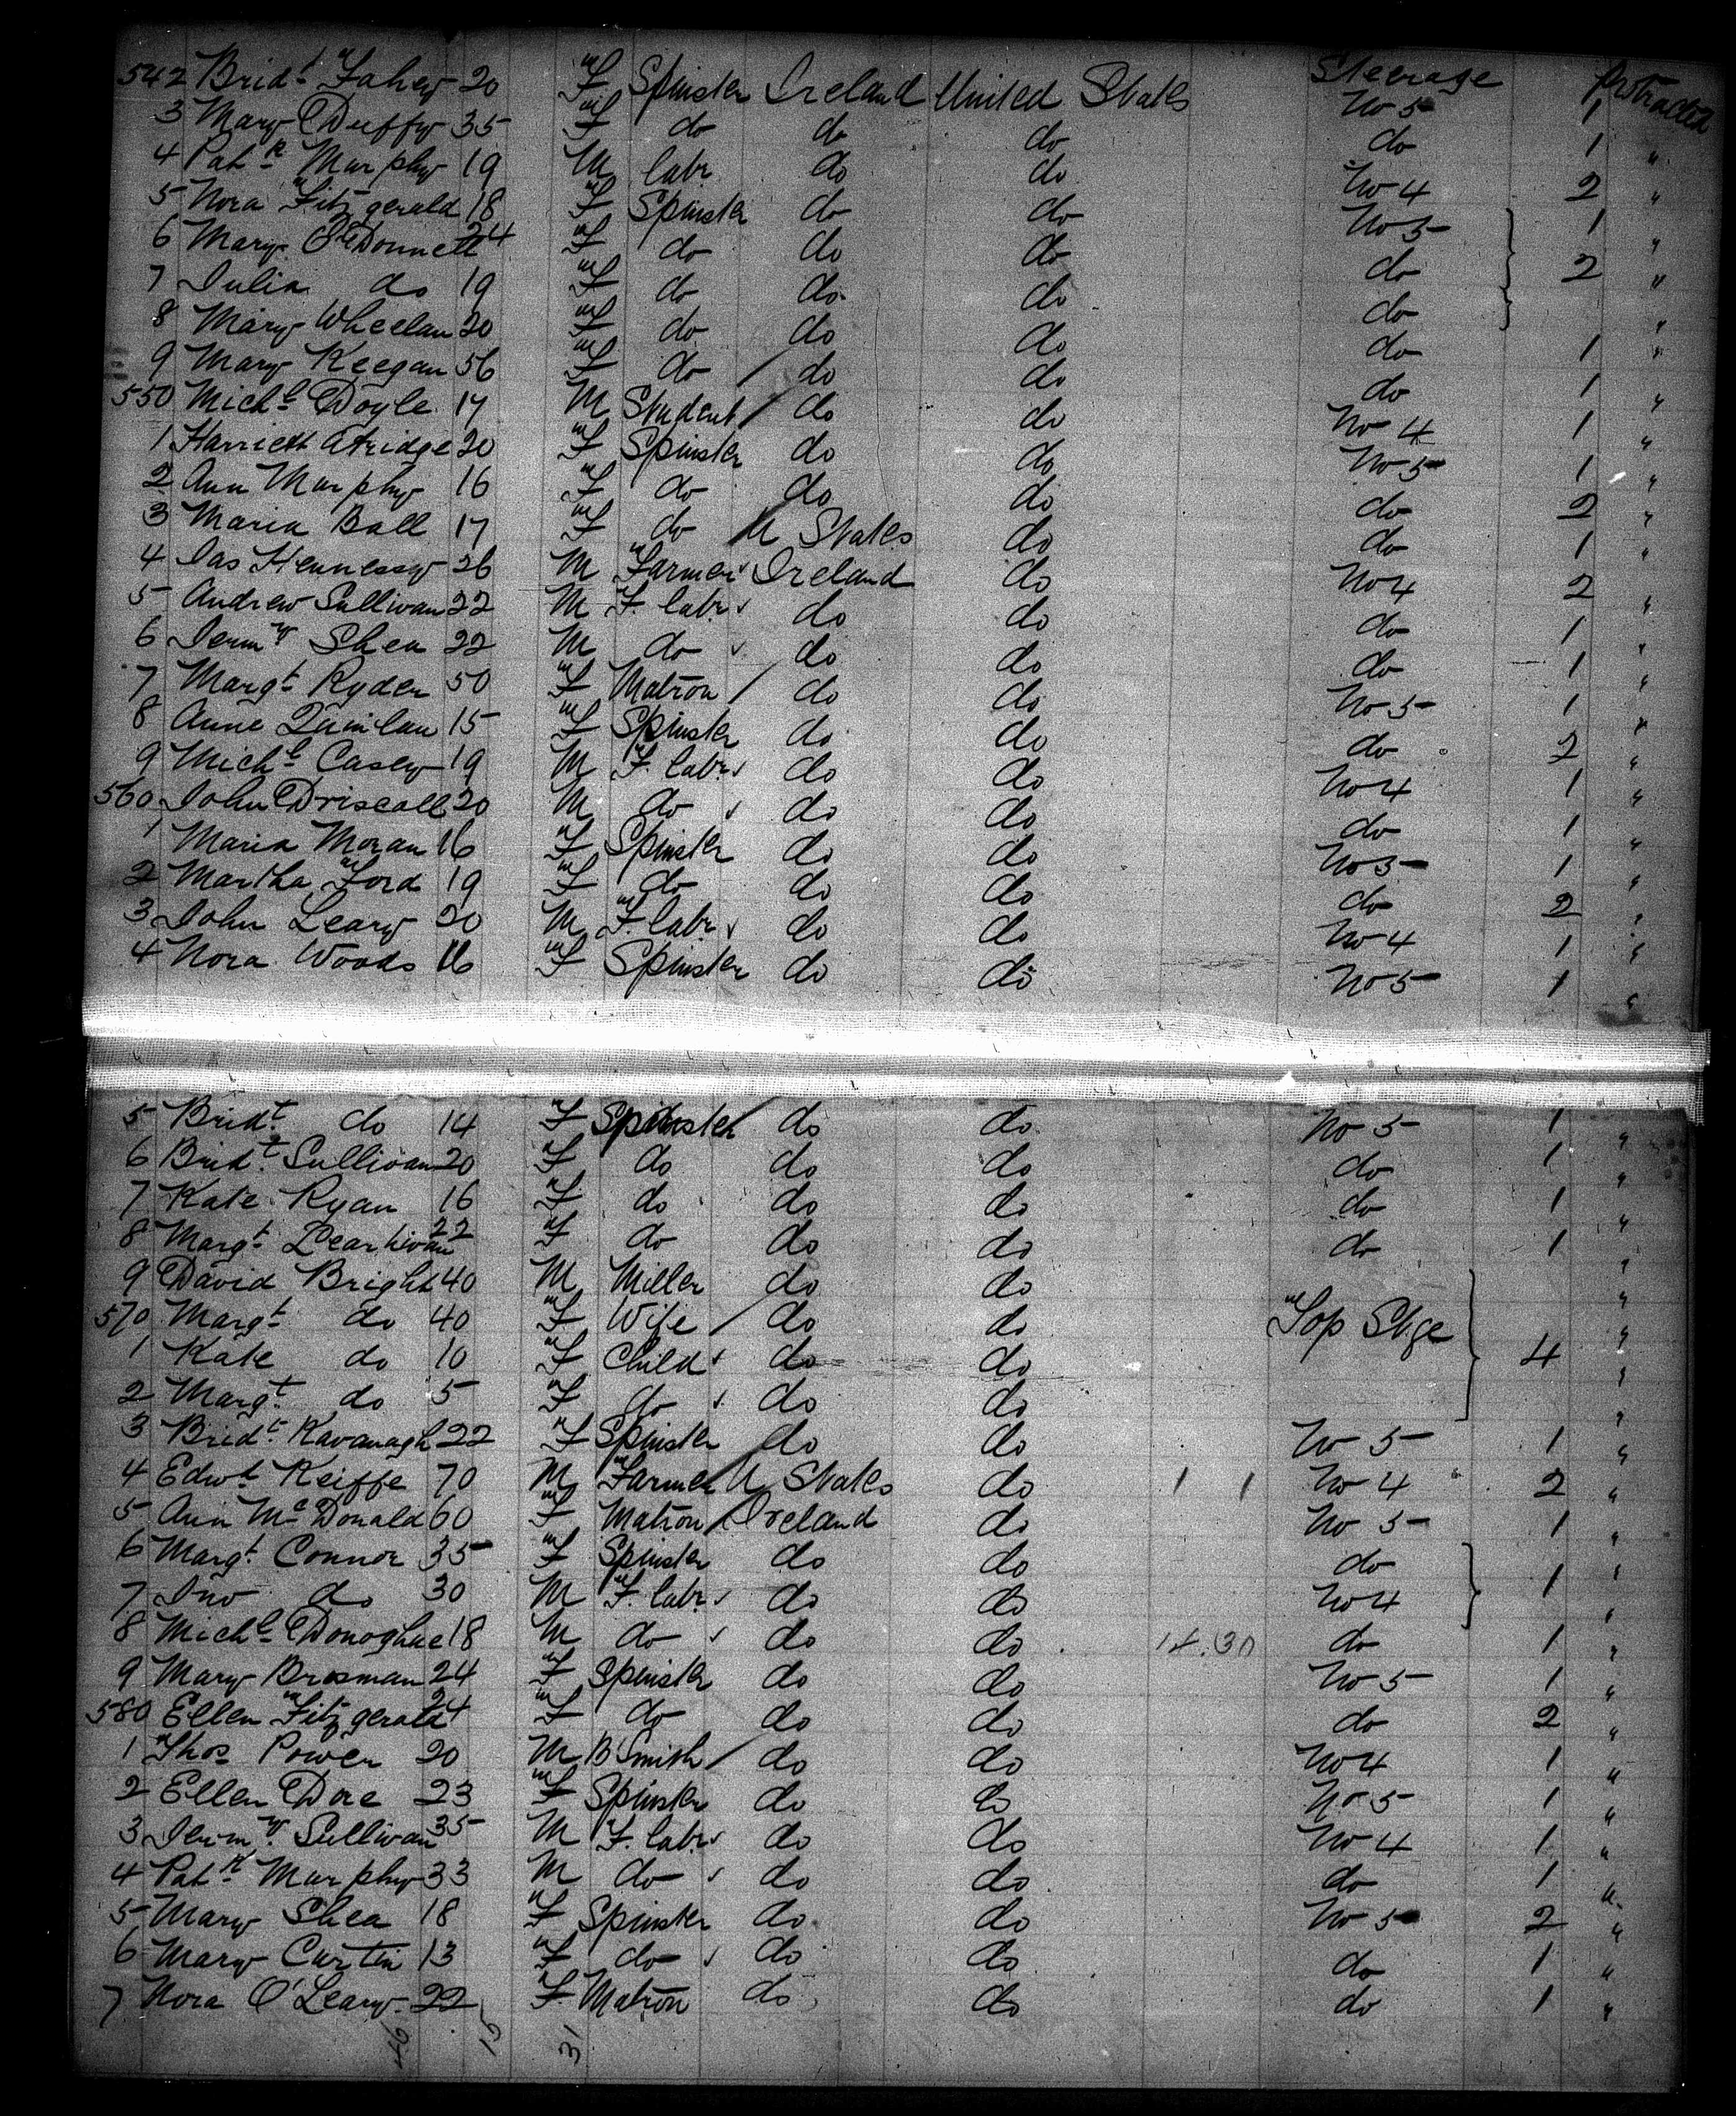 542 Bridt Fahey 20 F Spinster Ireland United States Steerage No 5 1 Protracted
3 Mary Duffy 35 F do do do do 1 "
4 Patk Murphy 19 M labr do do No 4 2 "
5 Nora Fitzgerald 18 F Spinster do do No 5 1 "
6 Mary O'Donnell 24 F do do do do 2 "
7 Julia do 19 F do do do do "
8 Mary Wheelan 20 F do do do do 1 "
9 Mary Keegan 56 F do do do do 1 "
550 Michl Doyle 17 M Student do do No 4 1 "
1 Harriett Atridge 20 F Spinster do do No 5 1 "
2 Ann Murphy 16 F do do do do 2 "
3 Maria Ball 17 F do U States do do 1 "
4 Jas Hennessy 26 M Farmer Ireland do No 4 2 "
5 Andrew Sullivan 22 M F. labr do do do 1 "
6 Jermy Shea 22 M do do do do 1 "
7 Margt Ryden 50 F Matron do do No 5 1 "
8 Anne Quinlan 15 F Spinster do do do 2 "
9 Michl Casey 19 M F. labr do do No 4 1 "
560 John Driscoll 20 M do do do do 1 "
1 Maria Moran 16 F Spinster do do No 5 1 "
2 Martha Ford 19 F do do do do 2 "
3 John Leary 20 M F. labr do do No 4 1 "
4 Nora Woods 16 F Spinster do do No 5 1 "
5 Bridt do 14 F Spinster do do No 5 1 "
6 Bridt Sullivan 20 F do do do do 1 "
7 Kate Ryan 16 F do do do do 1 "
8 Margt 22 F do do do do 1 "
9 David Bright 40 M Miller do do "
570 Margt do 40 F Wife do do Top Stge 4 "
1 Kate do 10 F Child do do "
2 Margt do 5 F do do do "
3 Bridt Kavanagh 22 F Spinster do do No 5 1 "
4 Edwd Keiffe 70 M Farmer U States do 1 1 No 4 2 "
5 Ann McDonald 60 F Matron Ireland do No 5 1 "
6 Margt Connor 35 F Spinster do do do 1 "
7 Jno do 30 M F. labr do do No 4 "
8 Michl Donoghue 18 M do do do 14.30 do 1 "
9 Mary Brosman 24 F Spinster do do No 5 1 "
580 Ellen Fitzgerald 24 F do do do do 2 "
1 Thos Power 20 M B Smith do do No 4 1 "
2 Ellen Dore 23 F Spinster do do No 5 1 "
3 Jermy Sullivan 35 M F. labr do do No 4 1 "
4 Patk Murphy 33 M do do do do 1 "
5 Mary Shea 18 F Spinster do do No 5 2 "
6 Mary Curtin 13 F do do do do 1 "
7 Nora O'Leary 22 F. Matron do do do 1 "
46 15 31